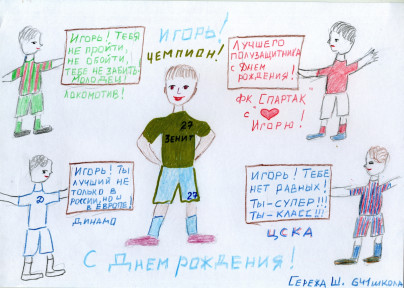 ИГОРЬ!
ЧЕМПИОН!
ИГОРЬ! ТЕБЯ
НЕ ПРОЙТИ,
НЕ ОБОЙТИ,
ТЕБЕ НЕ ЗАБИТЬ-
МОЛОДЕЦ!
ЛОКОМОТИВ!
ЛУЧШЕГО
ПОЛУЗАЩИТНИКА
С ДНЕМ
РОЖДЕНИЯ!
ФК "СПАРТАК"
С
ИГОРЮ!
ЗЕНИТ
27
27
ИГОРЬ! ТЫ
ЛУЧШИЙ НЕ
ТОЛЬКО В
РОССИИ, НО И
В ЕВРОПЕ!
Д
ДИНАМО
ИГОРЬ! ТЕБЕ
НЕТ РАВНЫХ!
ТЫ-СУПЕР!!!
ТЫ-КЛАСС!!!
ЦСКА
С ДНЕМ РОЖДЕНИЯ!
СЕРЕЖА Ш. 641 ШКОЛА